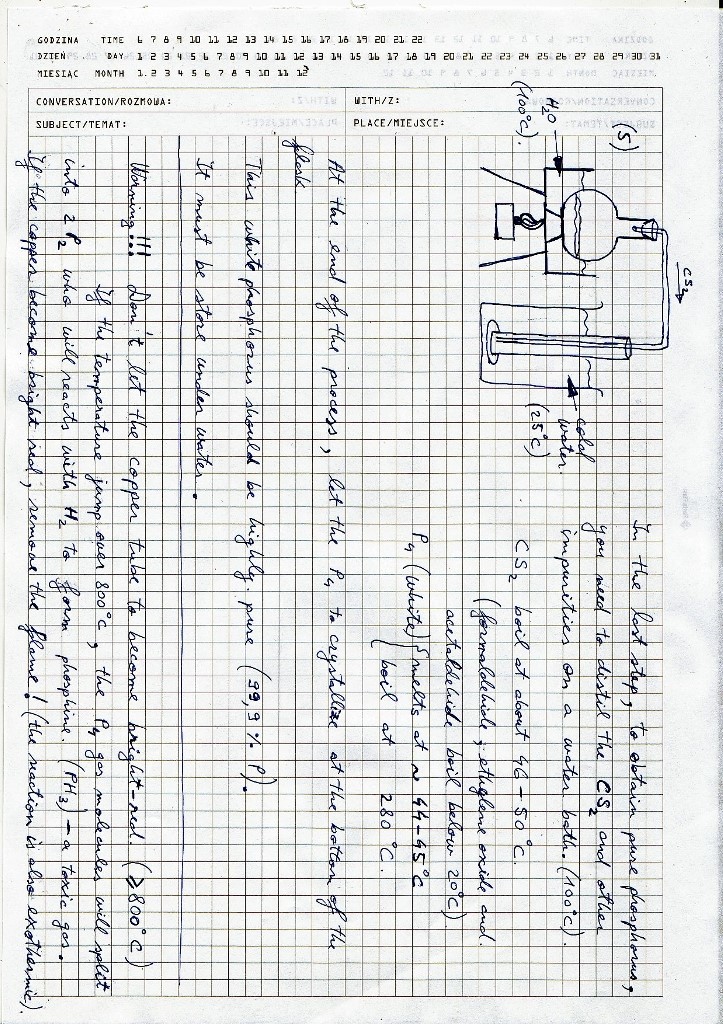 GODZINA TIME 6 7 8 9 10 11 12 13 14 15 16 17 18 19 20 21 22
DZIEŃ DAY 1 2 3 4 5 6 7 8 9 10 11 12 13 14 15 16 17 18 19 20 21 22 23 24 25 26 27 28 29 30 31
MIESIĄC MONTH 1 2 3 4 5 6 7 8 9 10 11 12
CONVERSATION/ROZMOWA: WITH/Z:
SUBJECT/TEMAT: PLACE/MIEJSCE:
(5)
H2O
(100°C).
CS2
cold water
(25°C)
In the last step, to obtain pure phosphorus,
you need to distil the CS2 and other
impurities on a water bath. (100°C).
CS2 boil at about 46-50°C.
(formaldehide, ethylene oxide and
acetaldehide boil below 20°C).
P4 (white) { melts at ~ 44-45°C
boil at 280°C.
At the end of the process, let the P4 to crystallize at the bottom of the
flask
This white phosphorus should be highly pure (99,9% P).
It must be store under water.
Worning!!! Don't let the copper tube to become bright-red. (≥800°C)
If the temperature jump over 800°C, the P4 gas molecules will split
into 2 P2 who will reacts with H2 to form phosphine. (PH3) - a toxic gas.
If the copper become bright red, remove the flame! (the reaction is also exothermic).